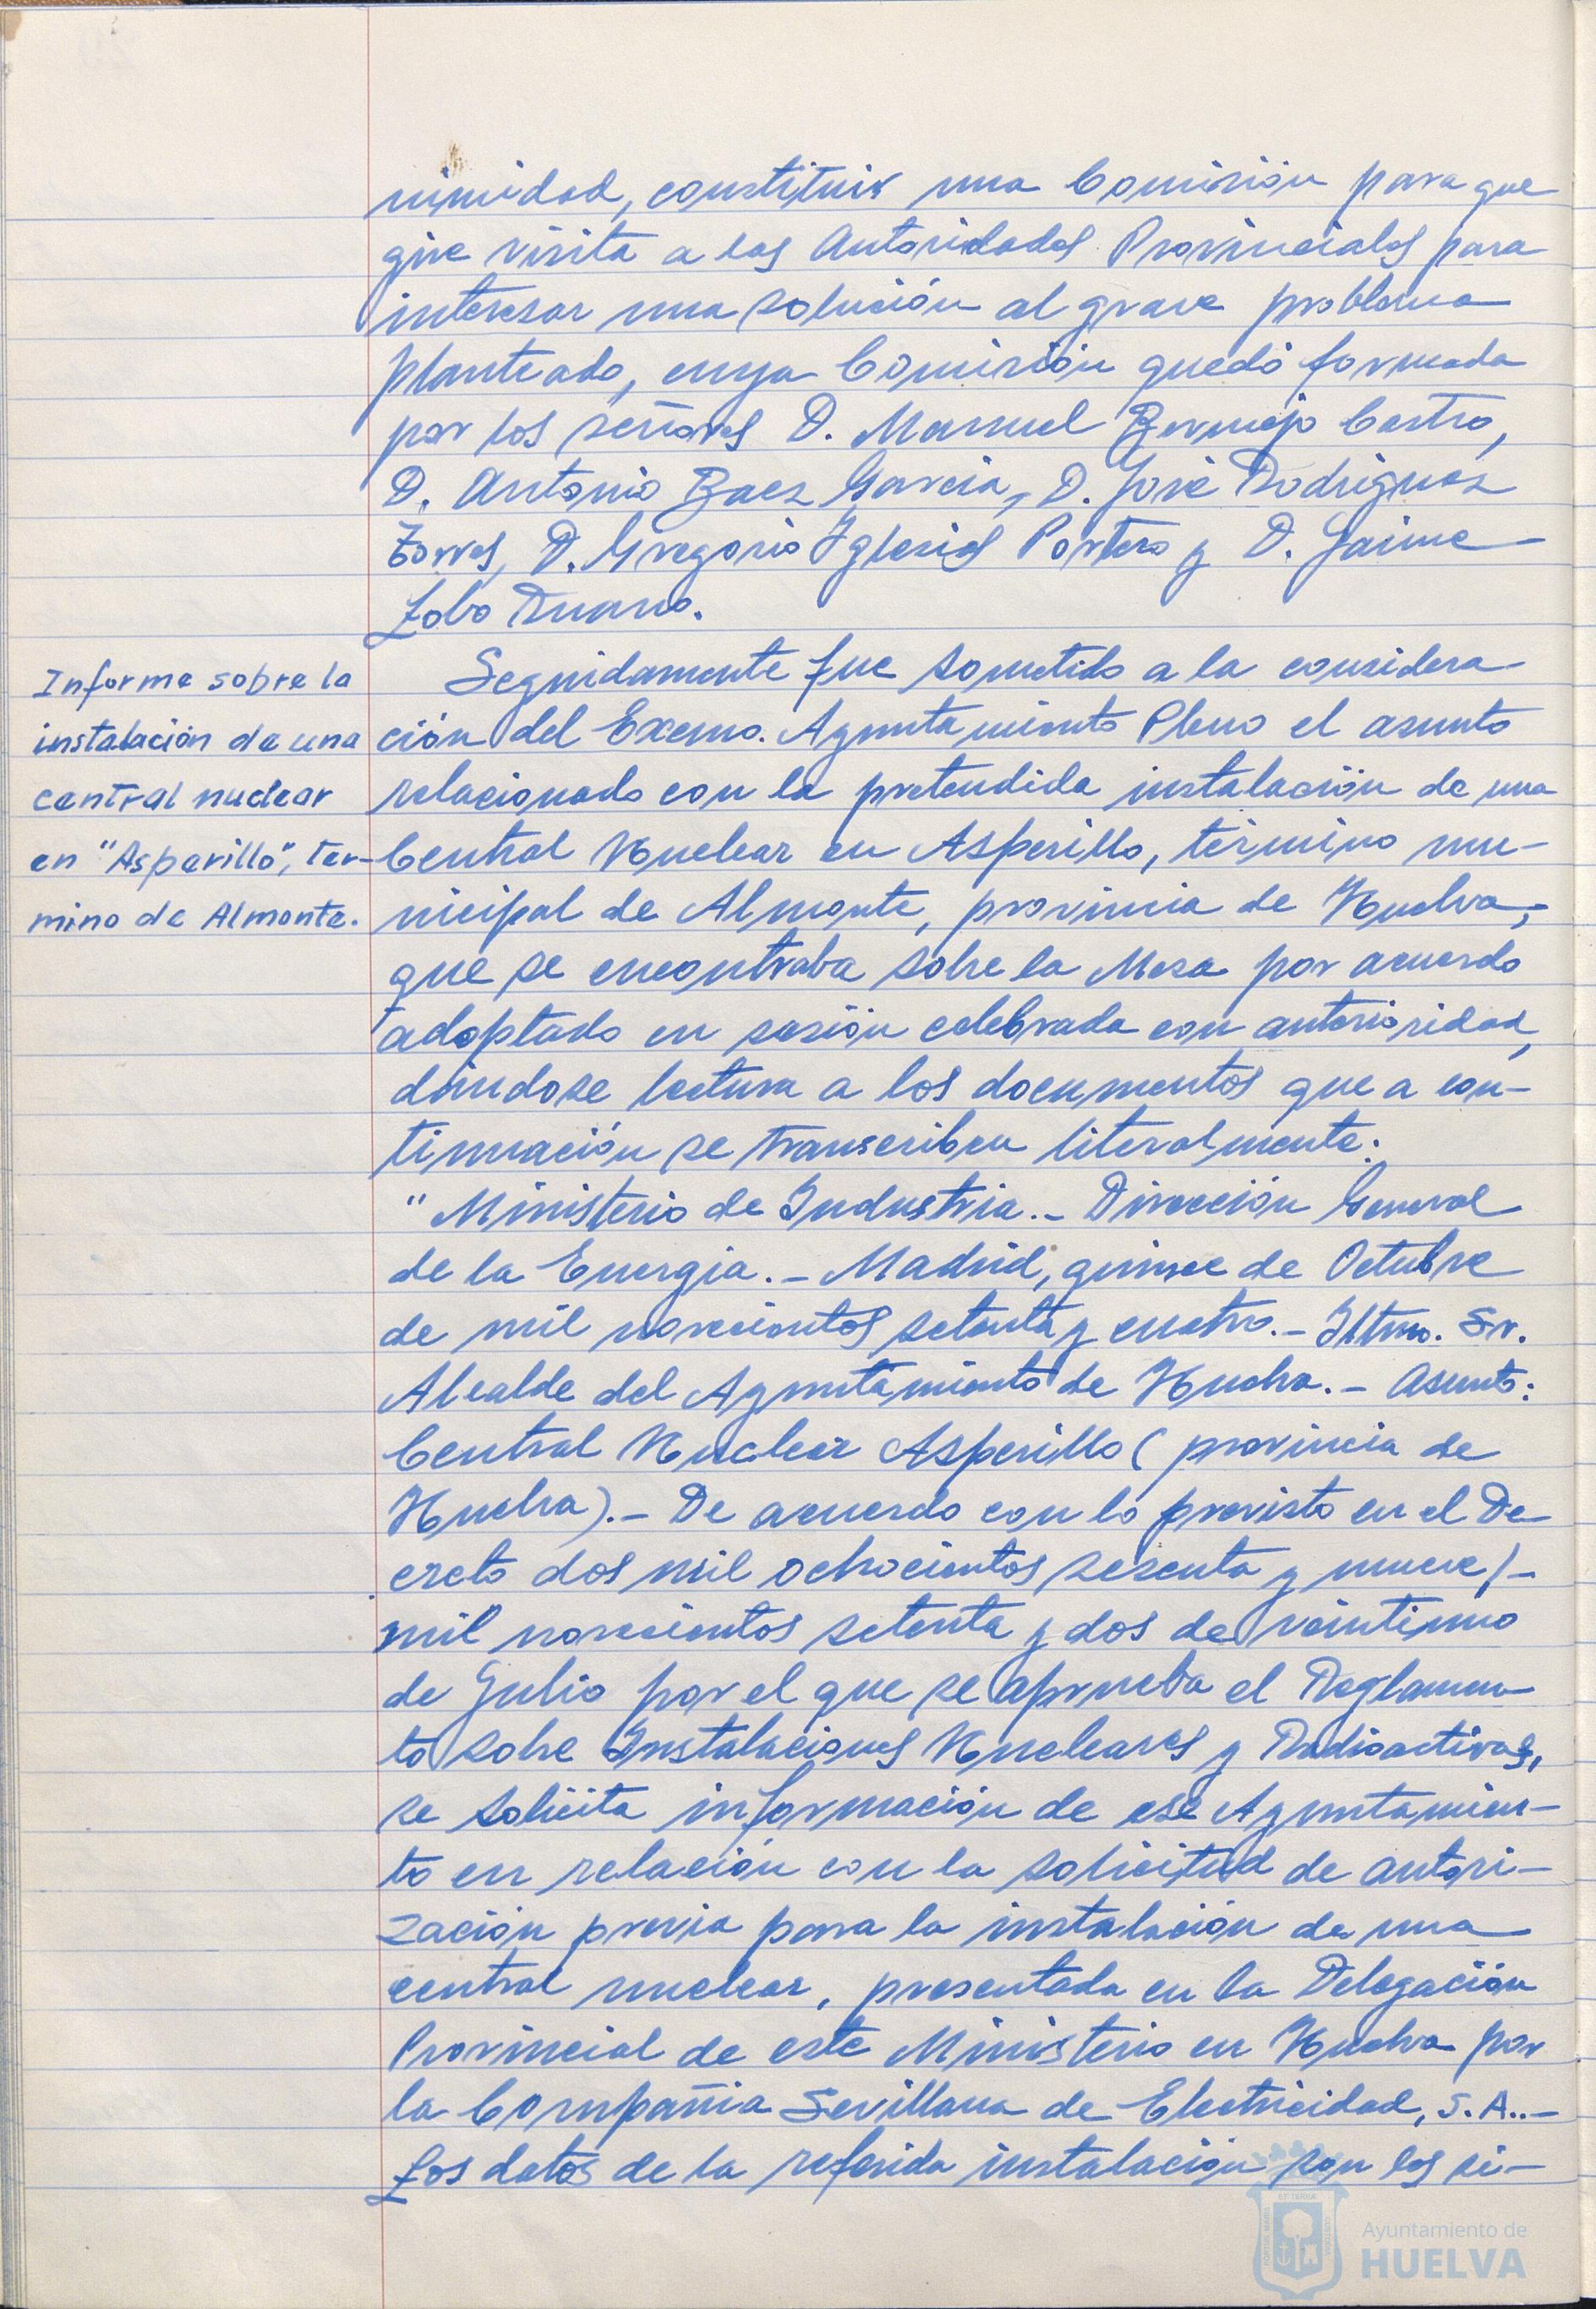 nimidad, constituir una Comisión para que
gire visita a las Autoridades Provinciales para
interesar una solución al grave problema
planteado, cuya Comisión quedó formada
por los señores D. Manuel Bermejo Castro,
D. Antonio Baez Garcia, D. José Rodriguez
Torres, D. Gregorio Iglesias Portero y D. Jaime
Lobo Ruano.
Informe sobre la
instalación de una
central nuclear
en "Asperillo", tér-
mino de Almonte.
Seguidamente fue sometido a la considera
ción del Excmo. Ayuntamiento Pleno el asunto
relacionado con la pretendida instalación de una
Central Nuclear en Asperillo, término mu-
nicipal de Almonte, provincia de Huelva,
que se encontraba sobre la Mesa por acuerdo
adoptado en sesión celebrada con anterioridad,
dándose lectura a los documentos que a con-
tinuación se transcriben literalmente:
"Ministerio de Industria.- Dirección General
de la Energia.- Madrid, quince de Octubre
de mil novecientos setenta y cuatro.- Iltmo. Sr.
Alcalde del Ayuntamiento de Huelva.- Asunto:
Central Nuclear Asperillo (provincia de
Huelva).- De acuerdo con lo previsto en el De-
creto dos mil ochocientos sesenta y nueve/-
mil novecientos setenta y dos de veintiuno
de Julio por el que se aprueba el Reglamen-
to sobre Instalaciones Nucleares y Radioactivas,
se solicita información de ese Ayuntamien-
to en relación con la solicitud de autori-
zación previa para la instalación de una
central nuclear, presentada en la Delegación
Provincial de este Ministerio en Huelva por
la Compañia Sevillana de Electricidad, S.A..-
Los datos de la referida instalación son los si-
Ayuntamiento de
HUELVA